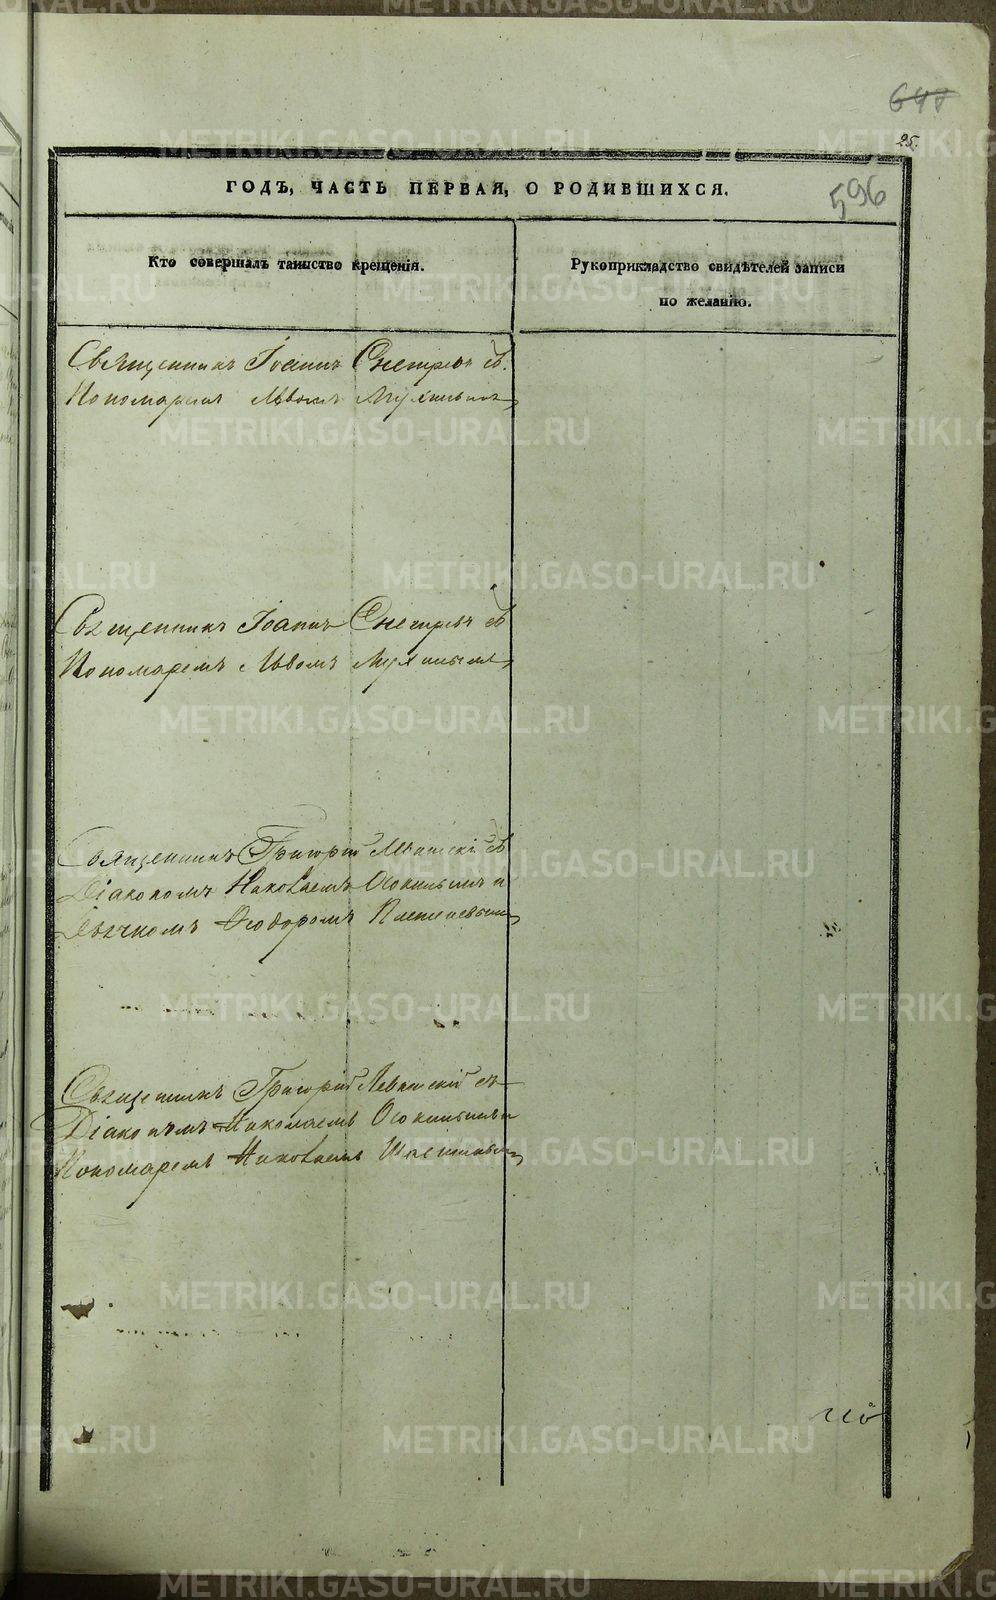 25.
596
ГОДЪ, ЧАСТЬ ПЕРВАЯ, О РОДИВШИХСЯ.
Кто совершалъ таинство крещенія.
Рукоприкладство свидѣтелей записи
по желанію.
Священникъ Іоаннъ съ
Пономаремъ Львомъ Мухинымъ
Священникъ Іоаннъ съ
Пономаремъ Львомъ Мухинымъ
Священникъ Григорій съ
Діакономъ Николаемъ Осокинымъ и
Дьячкомъ Ѳеодоромъ
Священникъ Григорій съ
Діакономъ Николаемъ Осокинымъ и
Пономаремъ Николаемъ
METRIKI.GASO-URAL.RU